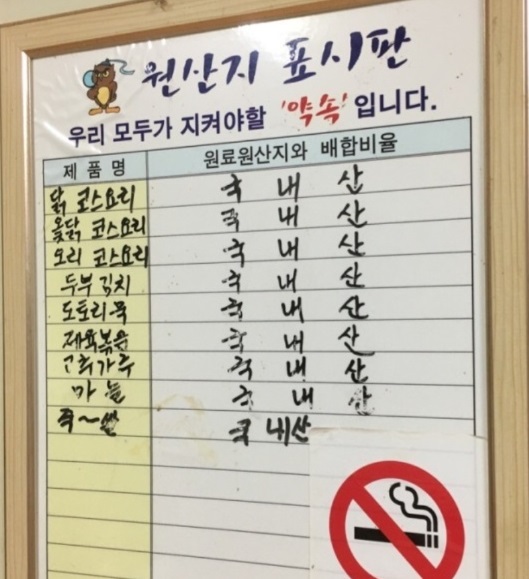 원산지 표시판
우리 모두가 지켜야할 '약속' 입니다.
제 품 명 원료원산지와 배합비율
닭 코스요리 국 내 산
옻닭 코스요리 국 내 산
오리 코스요리 국 내 산
두부김치 국 내 산
도토리묵 국 내 산
제육볶음 국 내 산
고추가루 국 내 산
마늘 국 내 산
죽~쌀 국내산